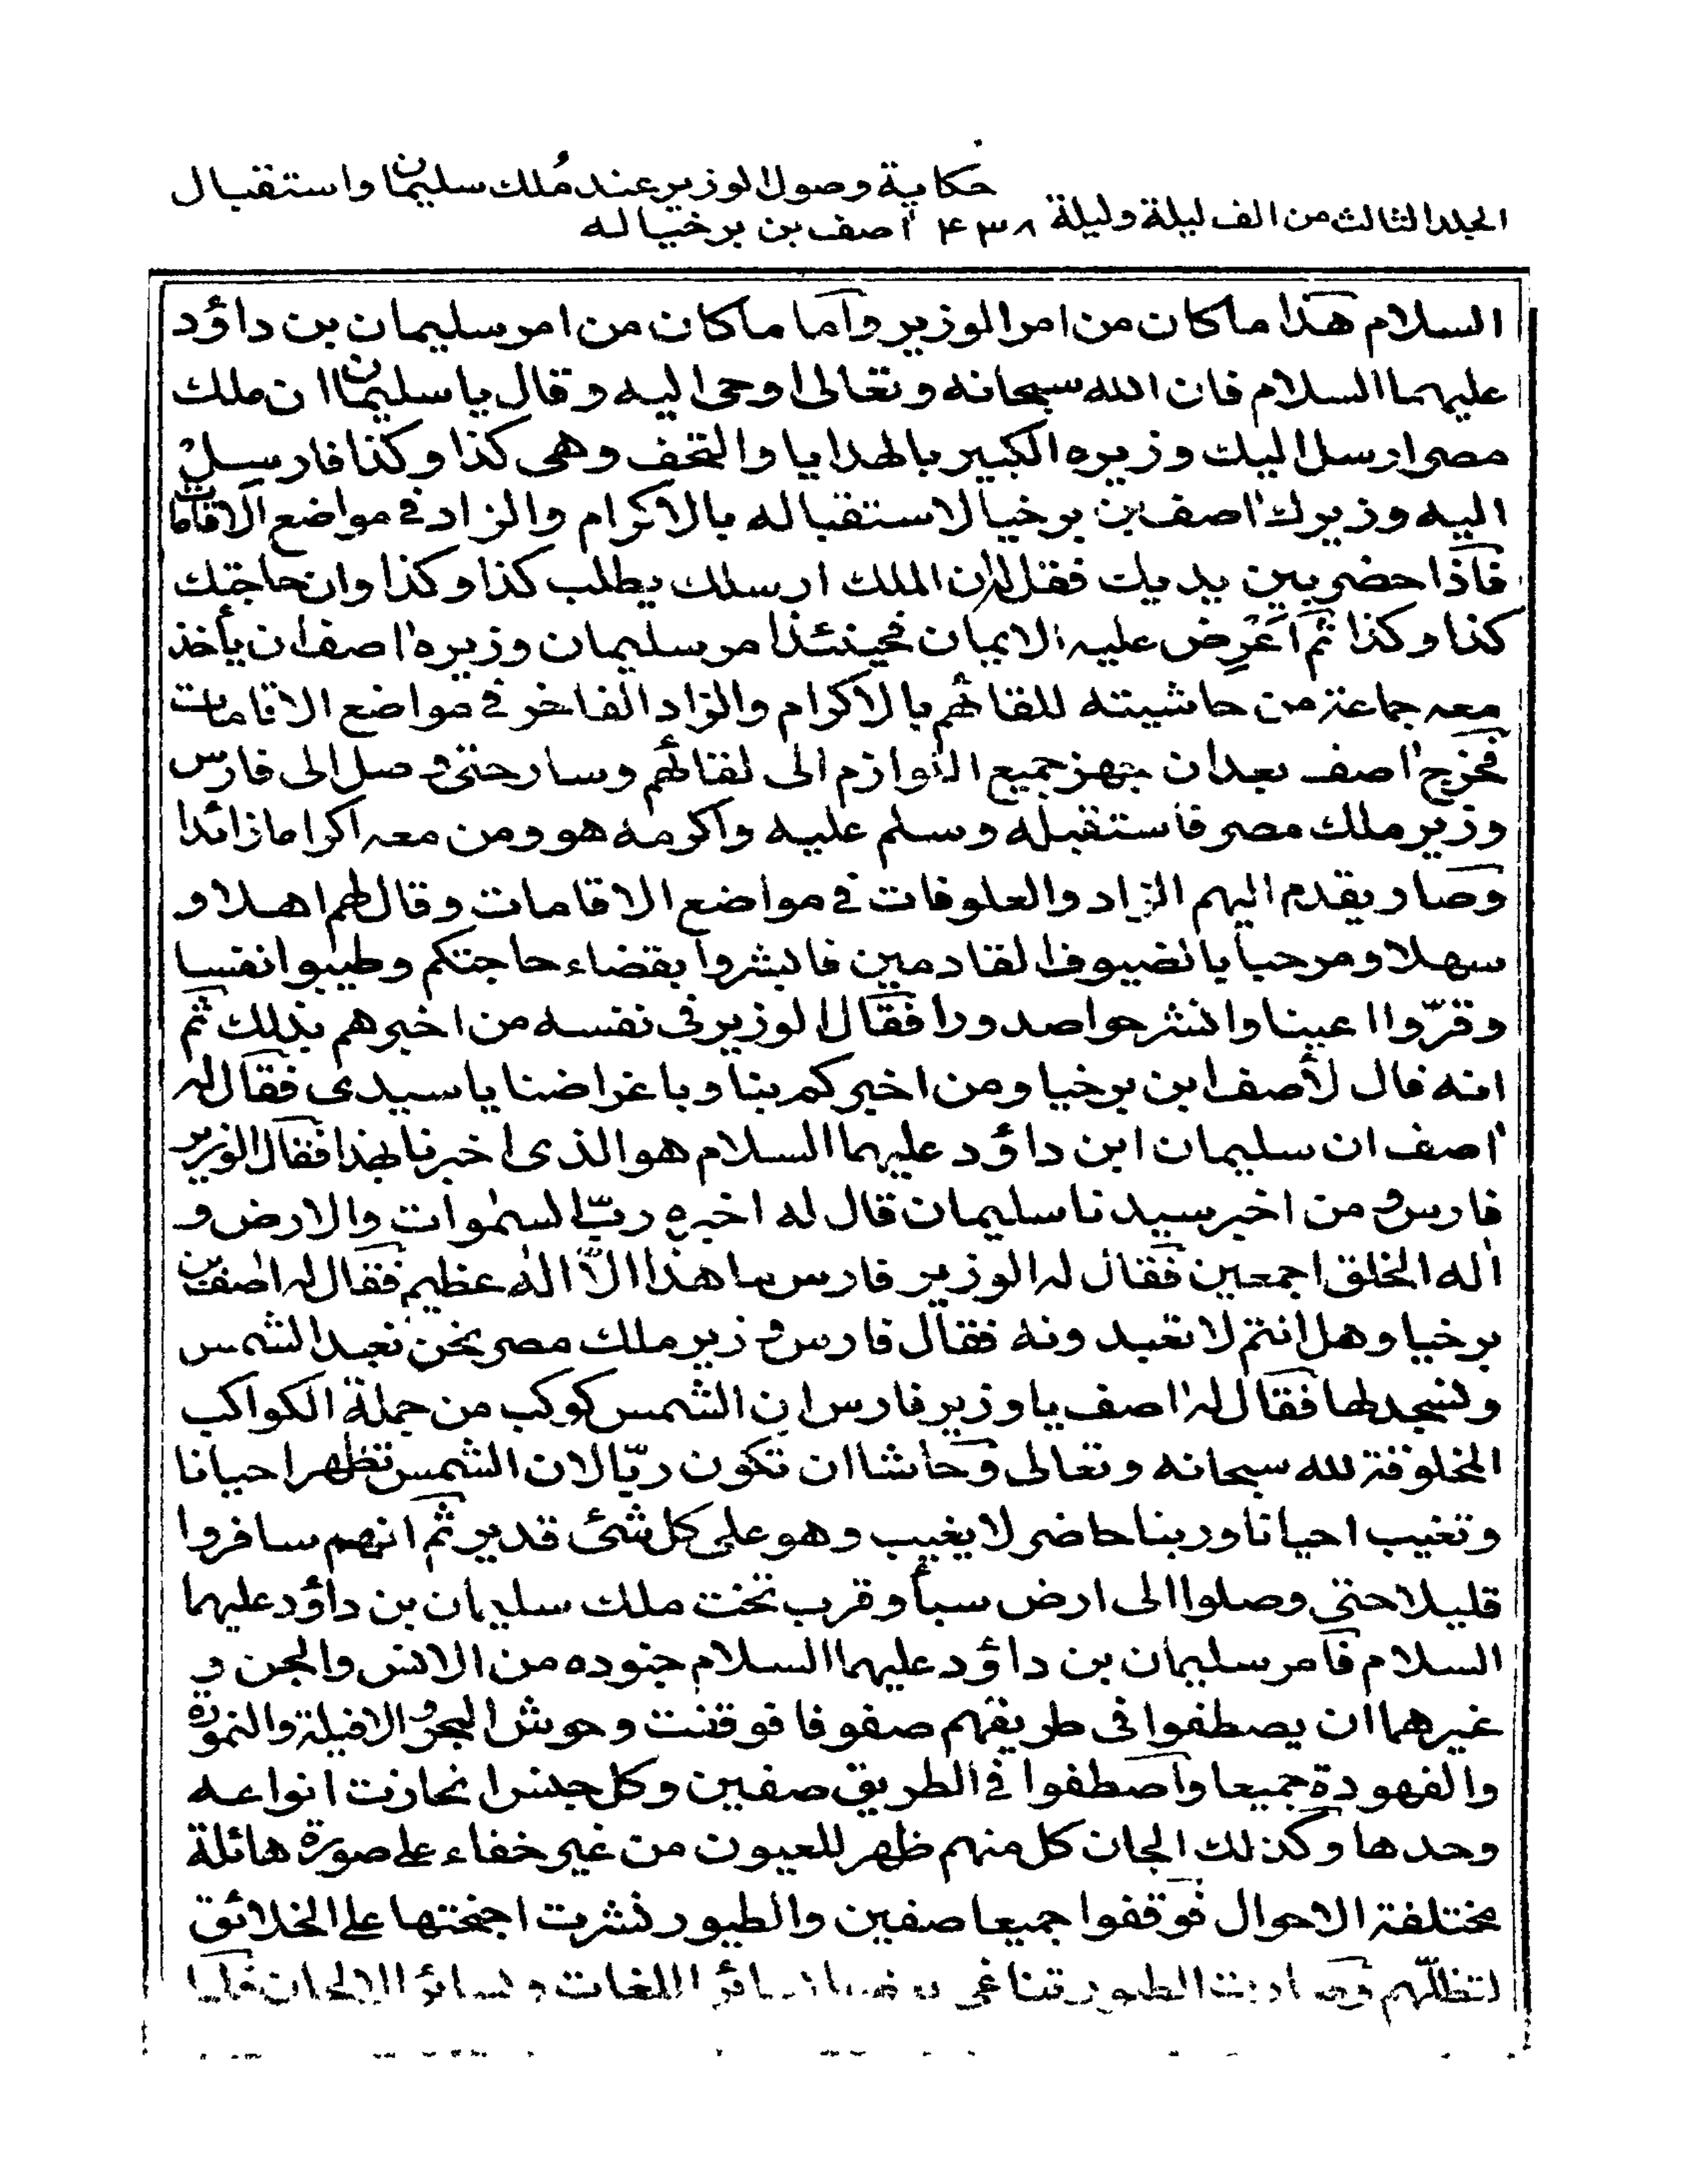 حكاية وصول الوزير عند ملك سليمان واستقبال
الجلد الثالث من الف ليلة وليلة ۴۳۸ اٰصف بن برخيا له
السلام هذا ما كان من امر الوزير واما ما كان من امر سليمان بن داؤد
عليهما السلام فان الله سبحانه وتعالى اوحى اليه وقال يا سليمان ان ملك
مصر ارسل اليك وزيره الكبير بالهدايا والتحف وهى كذا وكذا فارسل
اليه وزيرك اٰصف بن برخيا لاستقباله بالاكرام والزاد فى مواضع الاقامات
فاذا حضر بين يديك فقل له ان الملك ارسلك يطلب كذا وكذا وان حاجتك
كذا وكذا ثم اَعْرِض عليه الايمان فحينئذ امر سليمان وزيره اٰصف ان يأخذ
معه جماعة من حاشيته للقائهم بالاكرام والزاد الفاخر فى مواضع الاقامات
فخرج اٰصف بعد ان جهز جميع اللوازم الى لقائهم وسار حتى وصل الى فارس
وزير ملك مصر فاستقبله وسلم عليه واكرمه هو ومن معه اكراما زائدا
وصار يقدم اليهم الزاد والعلوفات فى مواضع الاقامات وقال لهم اهلا و
سهلا ومرحبا بالضيوف القادمين فابشروا بقضاء حاجتكم وطيبوا انفسا
وقرّوا اعينا وانشرحوا صدورا فقال الوزير فى نفسه من اخبرهم بذلك ثم
انه قال لأصف ابن برخيا ومن اخبركم بنا وباغراضنا يا سيدى فقال له
اٰصف ان سليمان ابن داؤد عليهما السلام هو الذى اخبرنا بهذا فقال الوزير
فارس و من اخبر سيدنا سليمان قال له اخبره ربّ السمٰوات والارض و
اٰله الخلق اجمعين فقال له الوزير فارس ما هذا الّا الٰه عظيم فقال له اٰصف بن
برخيا وهل انتم لا تعبدونه فقال فارس وزير ملك مصر نحن نعبد الشمس
ونسجد لها فقال له اٰصف يا وزير فارس ان الشمس كوكب من جملة الكواكب
المخلوقة لله سبحانه وتعالى وحاشا ان تكون ربّا لان الشمس تظهر احيانا
وتغيب احيانا وربنا حاضر لا يغيب وهو على كل شئ قدير ثم انهم سافروا
قليلا حتى وصلوا الى ارض سبأ وقرب تخت ملك سليمان بن داؤد عليهما
السلام فامر سليمان بن داؤد عليهما السلام جنوده من الانس والجن و
غيرهما ان يصطفوا فى طريقهم صفوفا فوقفت وحوش البحر والافيلة والنمورة
والفهودة جميعا واصطفوا فى الطريق صفين وكل جنس انحازت انواعه
وحدها وكذلك الجان كل منهم ظهر للعيون من غير خفاء على صورة هائلة
مختلفة الاحوال فوقفوا جميعا صفين والطيور نشرت اجنحتها على الخلائق
لتظلّهم وصارت الطيور تناغى بعضها بسائر اللغات وبسائر الالحان فلما